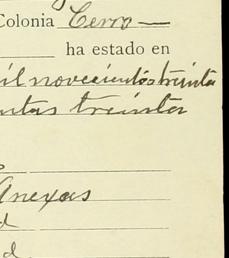 Colonia Cerro
ha estado en
il novecientos treinta
ntas treinta
Anexas
d
d.